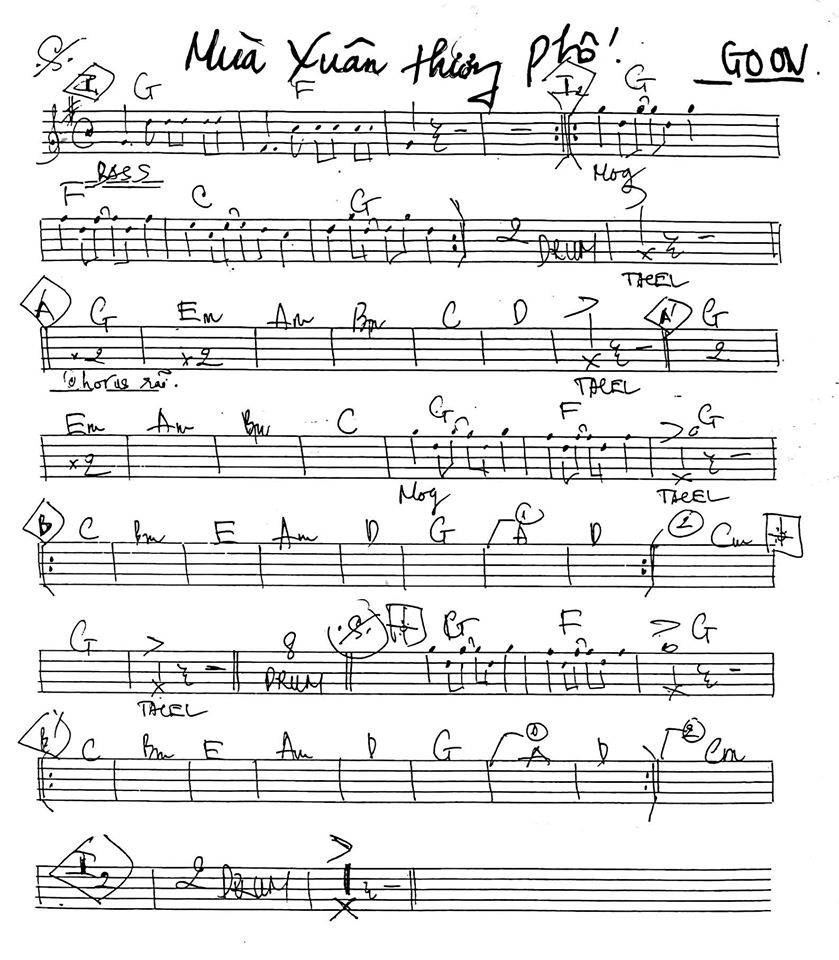 Mùa Xuân thương Phố! GO ON.
I G F I2 G
BASS Mog
F C G
2 DRUM
TACEL
A G Em Am Bm C D A' G
x2 x2 2
Chorus rải. TACEL
Em Am Bm C G F G
x2
Mog TACEL
B C Bm E Am D G 1 A D 2 Cm
G 8 G F G
DRUM
TACEL
B' C Bm E Am D G 1 A D 2 Cm
I2 2 DRUM